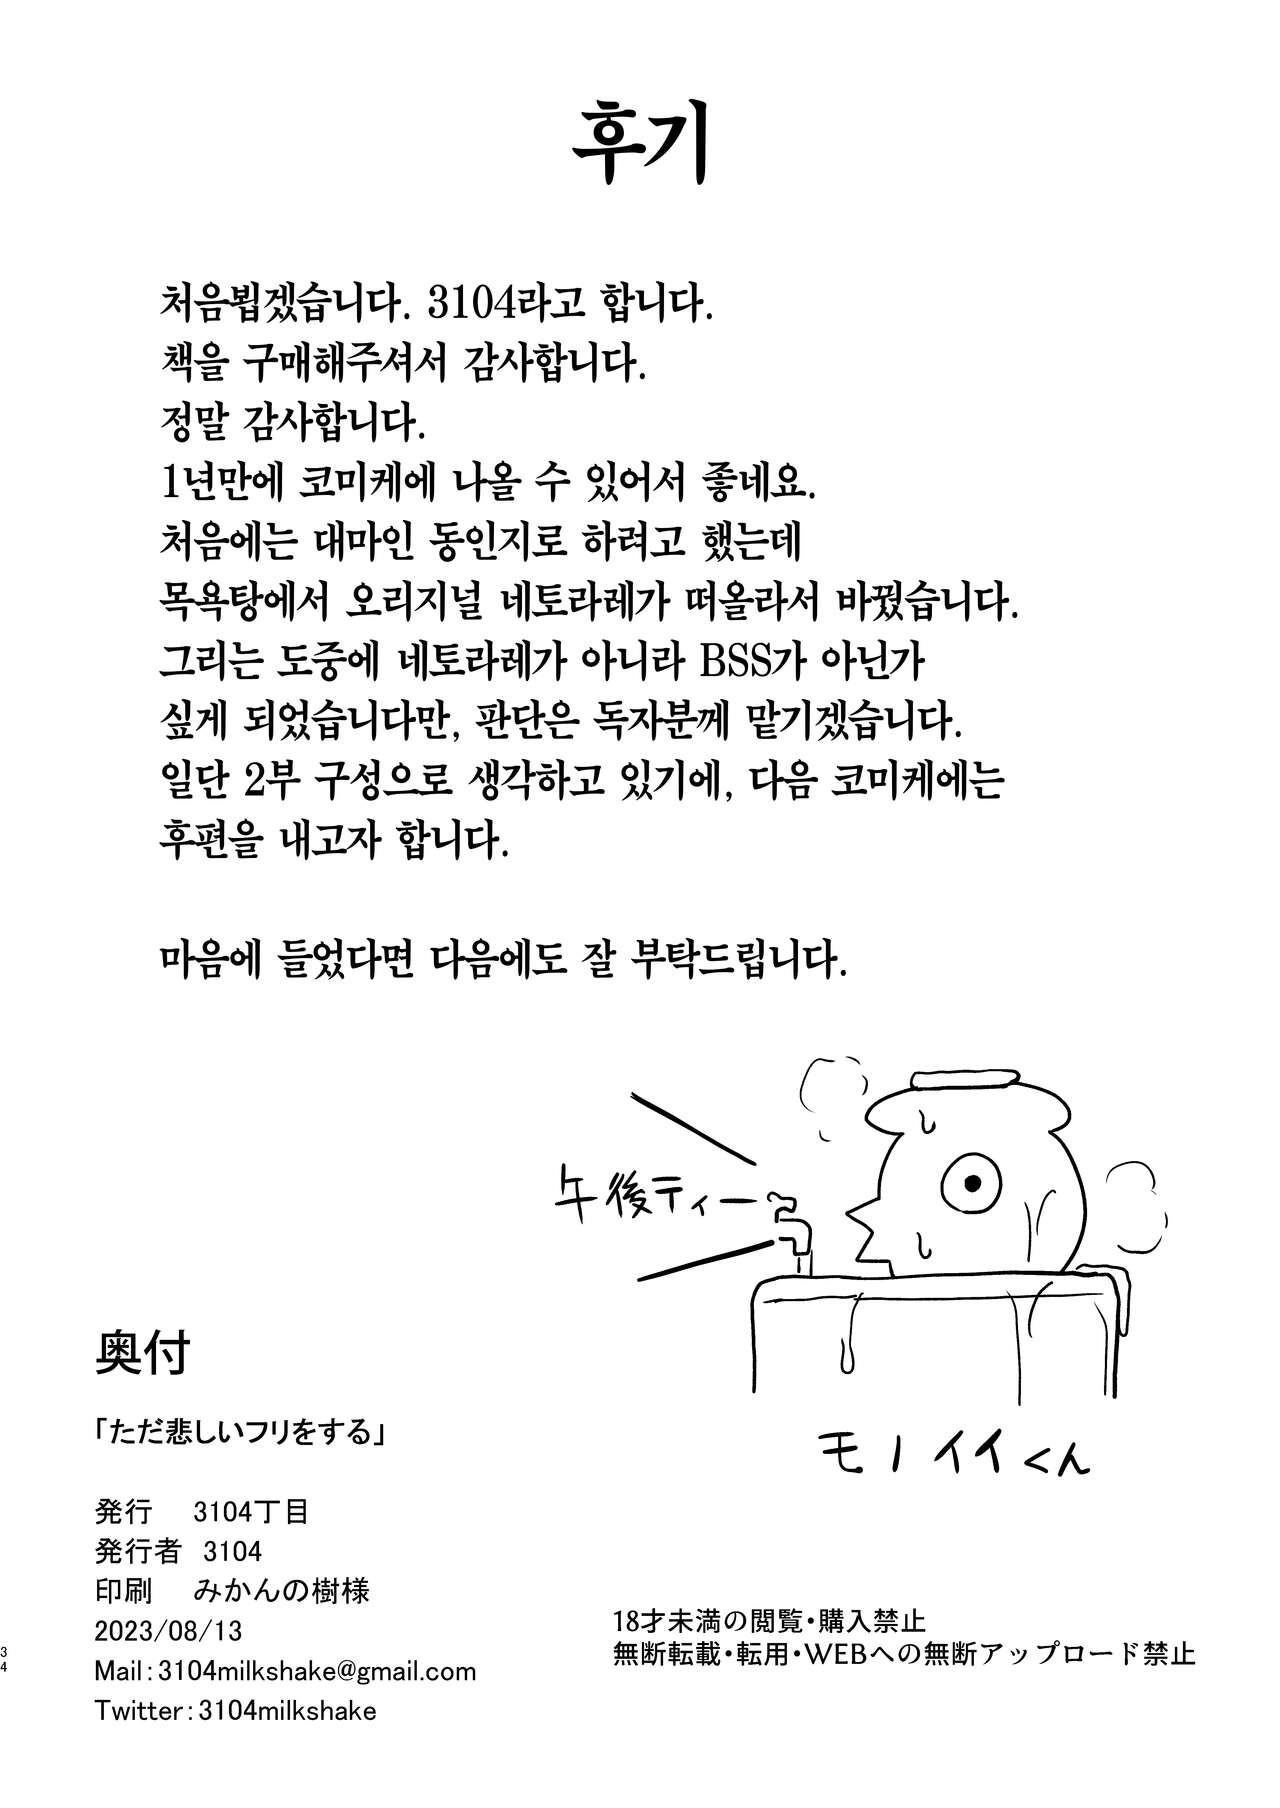 후기
처음뵙겠습니다. 3104라고 합니다.
책을 구매해주셔서 감사합니다.
정말 감사합니다.
1년만에 코미케에 나올 수 있어서 좋네요.
처음에는 대마인 동인지로 하려고 했는데
목욕탕에서 오리지널 네토라레가 떠올라서 바꿨습니다.
그리는 도중에 네토라레가 아니라 BSS가 아닌가
싶게 되었습니다만, 판단은 독자분께 맡기겠습니다.
일단 2부 구성으로 생각하고 있기에, 다음 코미케에는
후편을 내고자 합니다.
마음에 들었다면 다음에도 잘 부탁드립니다.
午後ティー
モノイイくん
奥付
「ただ悲しいフリをする」
発行 3104丁目
発行者 3104
印刷 みかんの樹様
2023/08/13
Mail:3104milkshake@gmail.com
Twitter:3104milkshake
18才未満の閲覧・購入禁止
無断転載・転用・WEBへの無断アップロード禁止
34